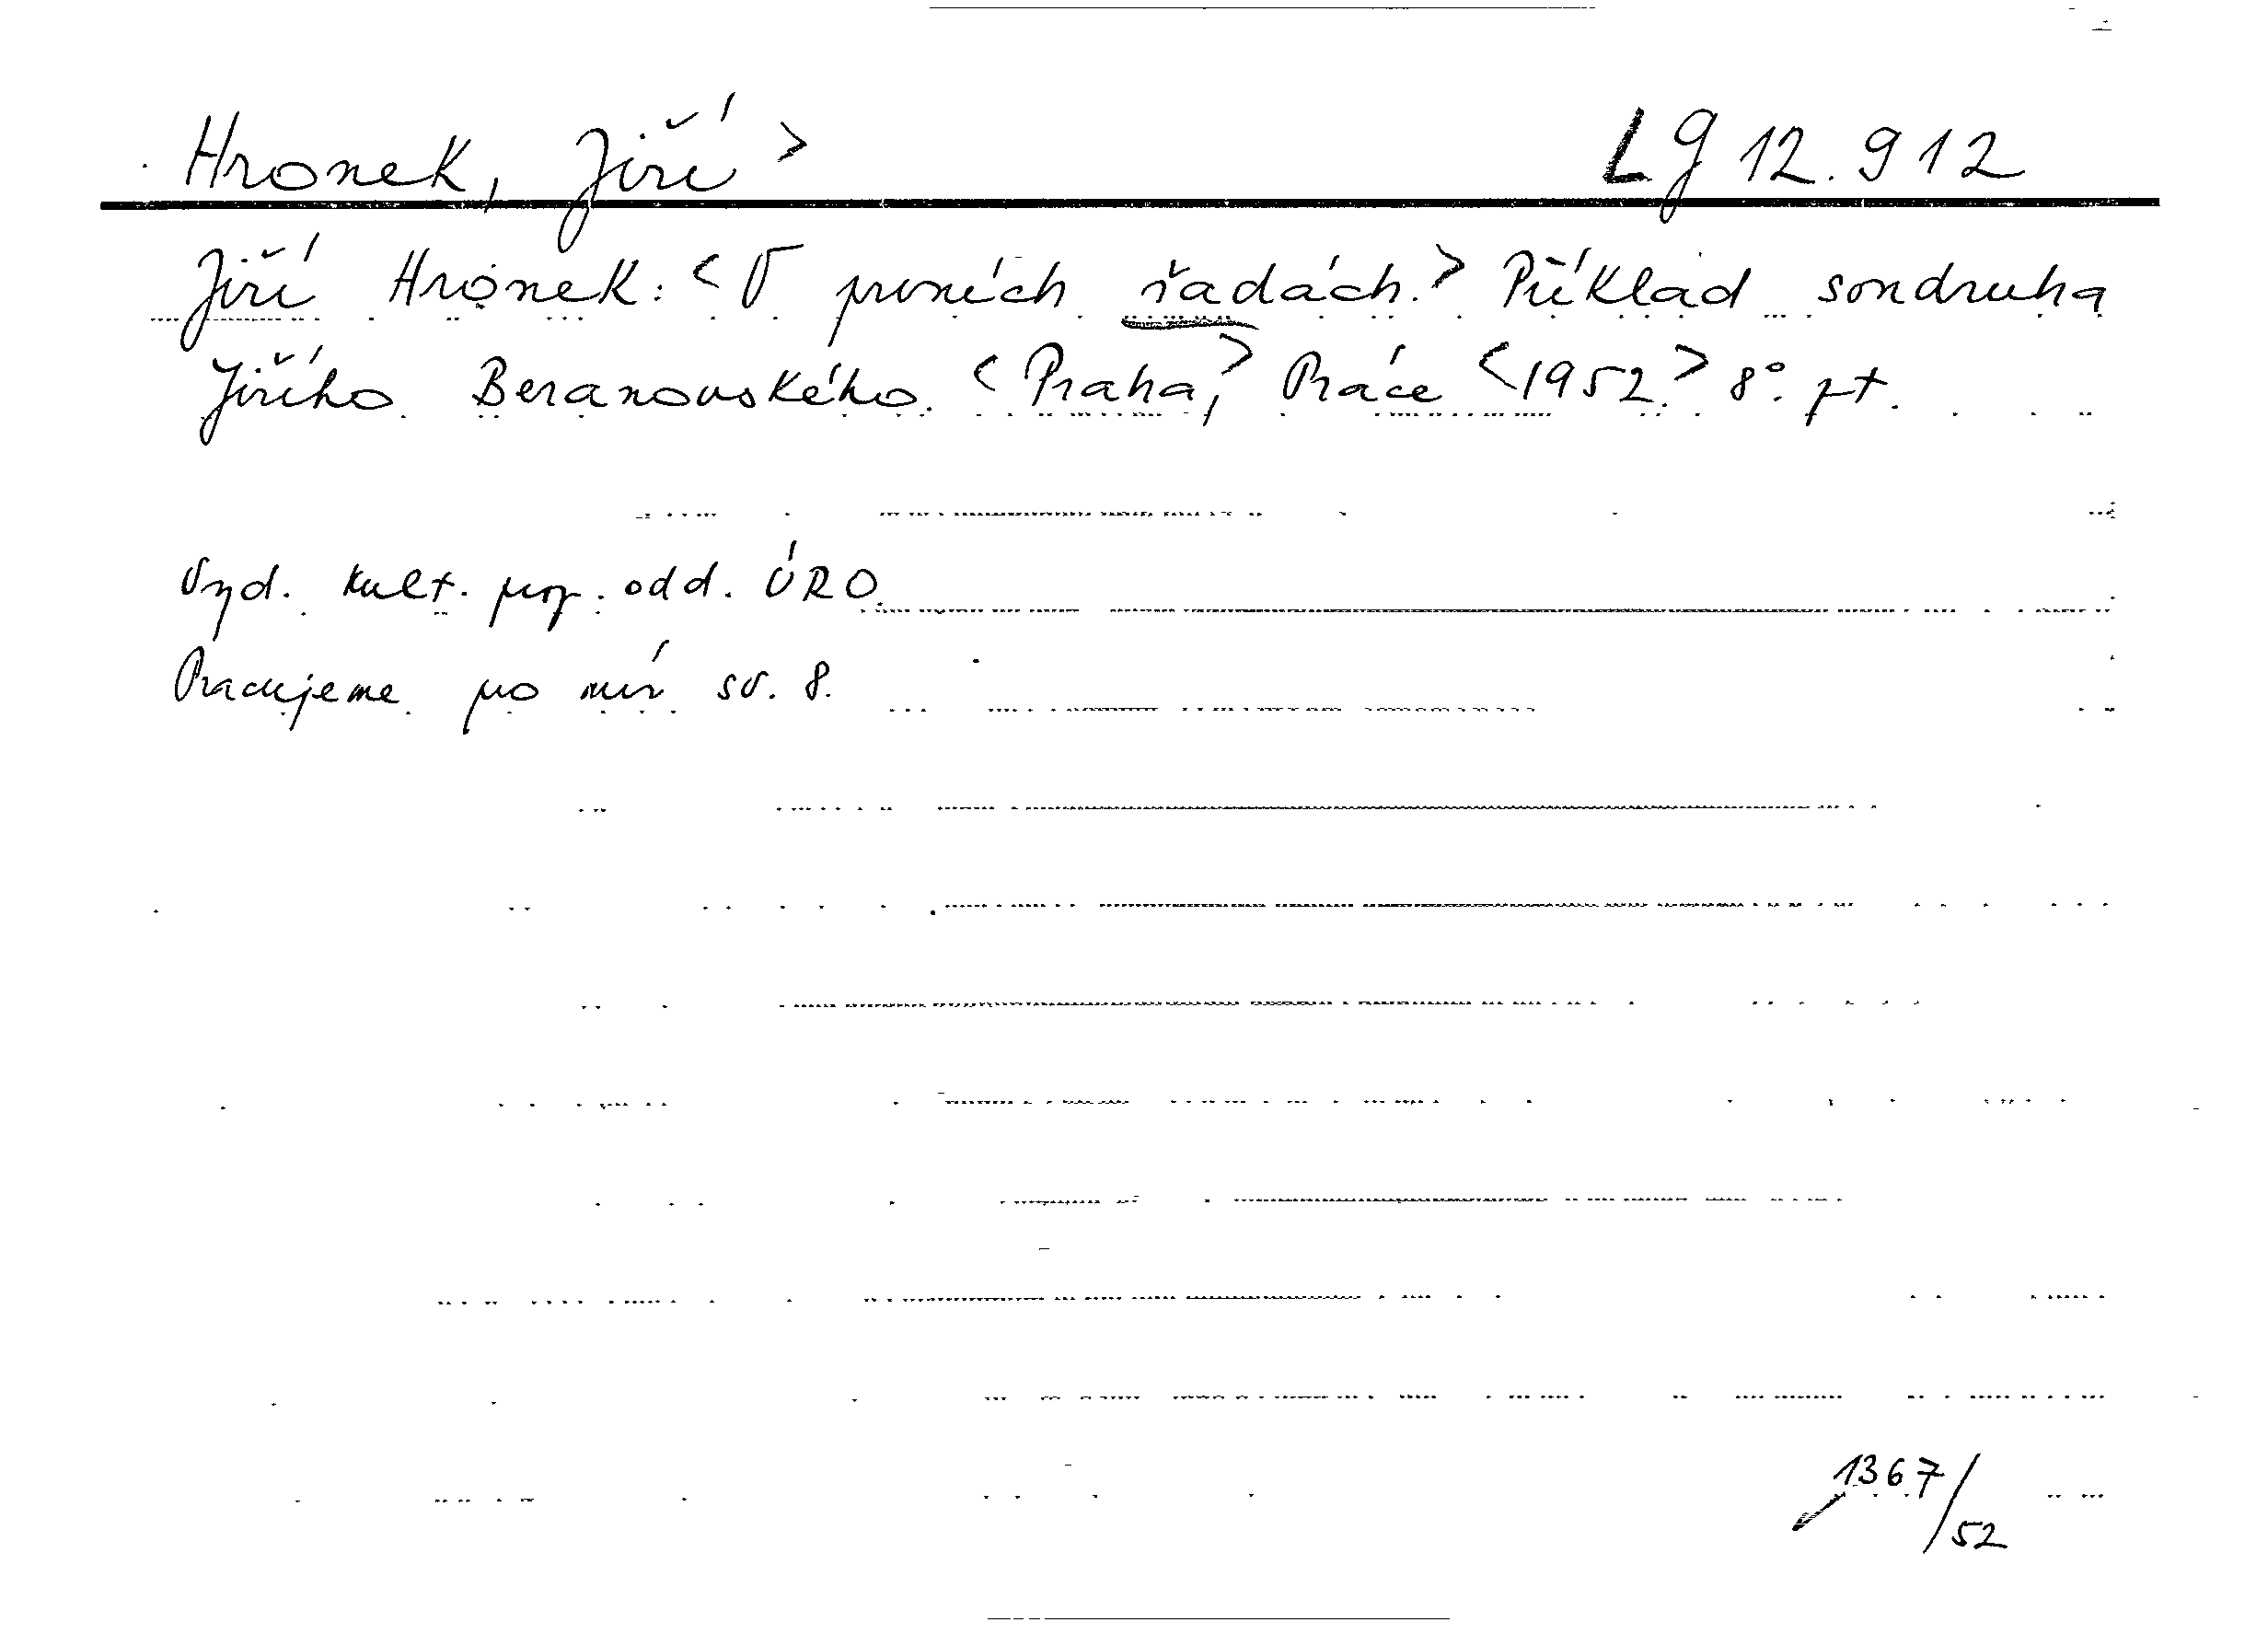 Hronek, Jiří > Lg 12.912
Jiří Hronek: < V prvních řadách. > Příklad soudruha
Jiřího Beranovského. < Praha, > Práce < 1952. > 8°. pt.
Vyd. kult. prop. odd. ÚRO.
Pracujeme pro mír sv. 8.
1367/52